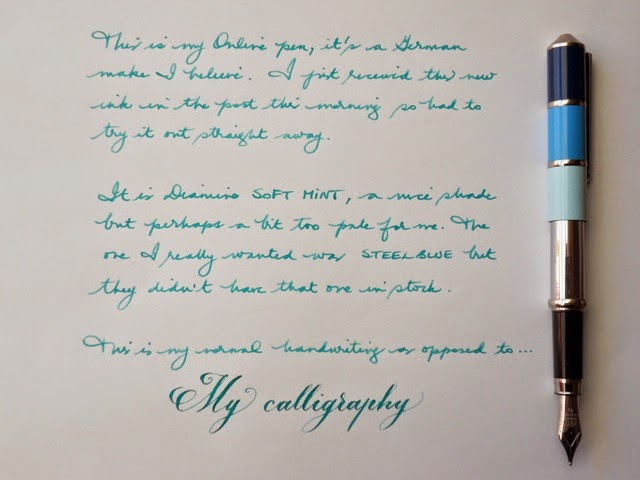 This is my Online pen, it's a German
make I believe. I just received this new
ink in the post this morning so had to
try it out straight away.
It is Diamine SOFT MINT, a nice shade
but perhaps a bit too pale for me. The
one I really wanted was STEELBLUE but
they didn't have that one in stock.
This is my normal handwriting as opposed to...
My calligraphy